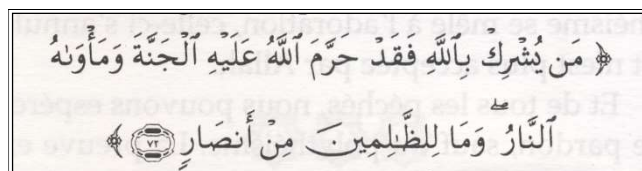 ﴿ مَن يُشْرِكْ بِٱللَّهِ فَقَدْ حَرَّمَ ٱللَّهُ عَلَيْهِ ٱلْجَنَّةَ وَمَأْوَىٰهُ
ٱلنَّارُ ۖ وَمَا لِلظَّٰلِمِينَ مِنْ أَنصَارٍ ٧٢ ﴾